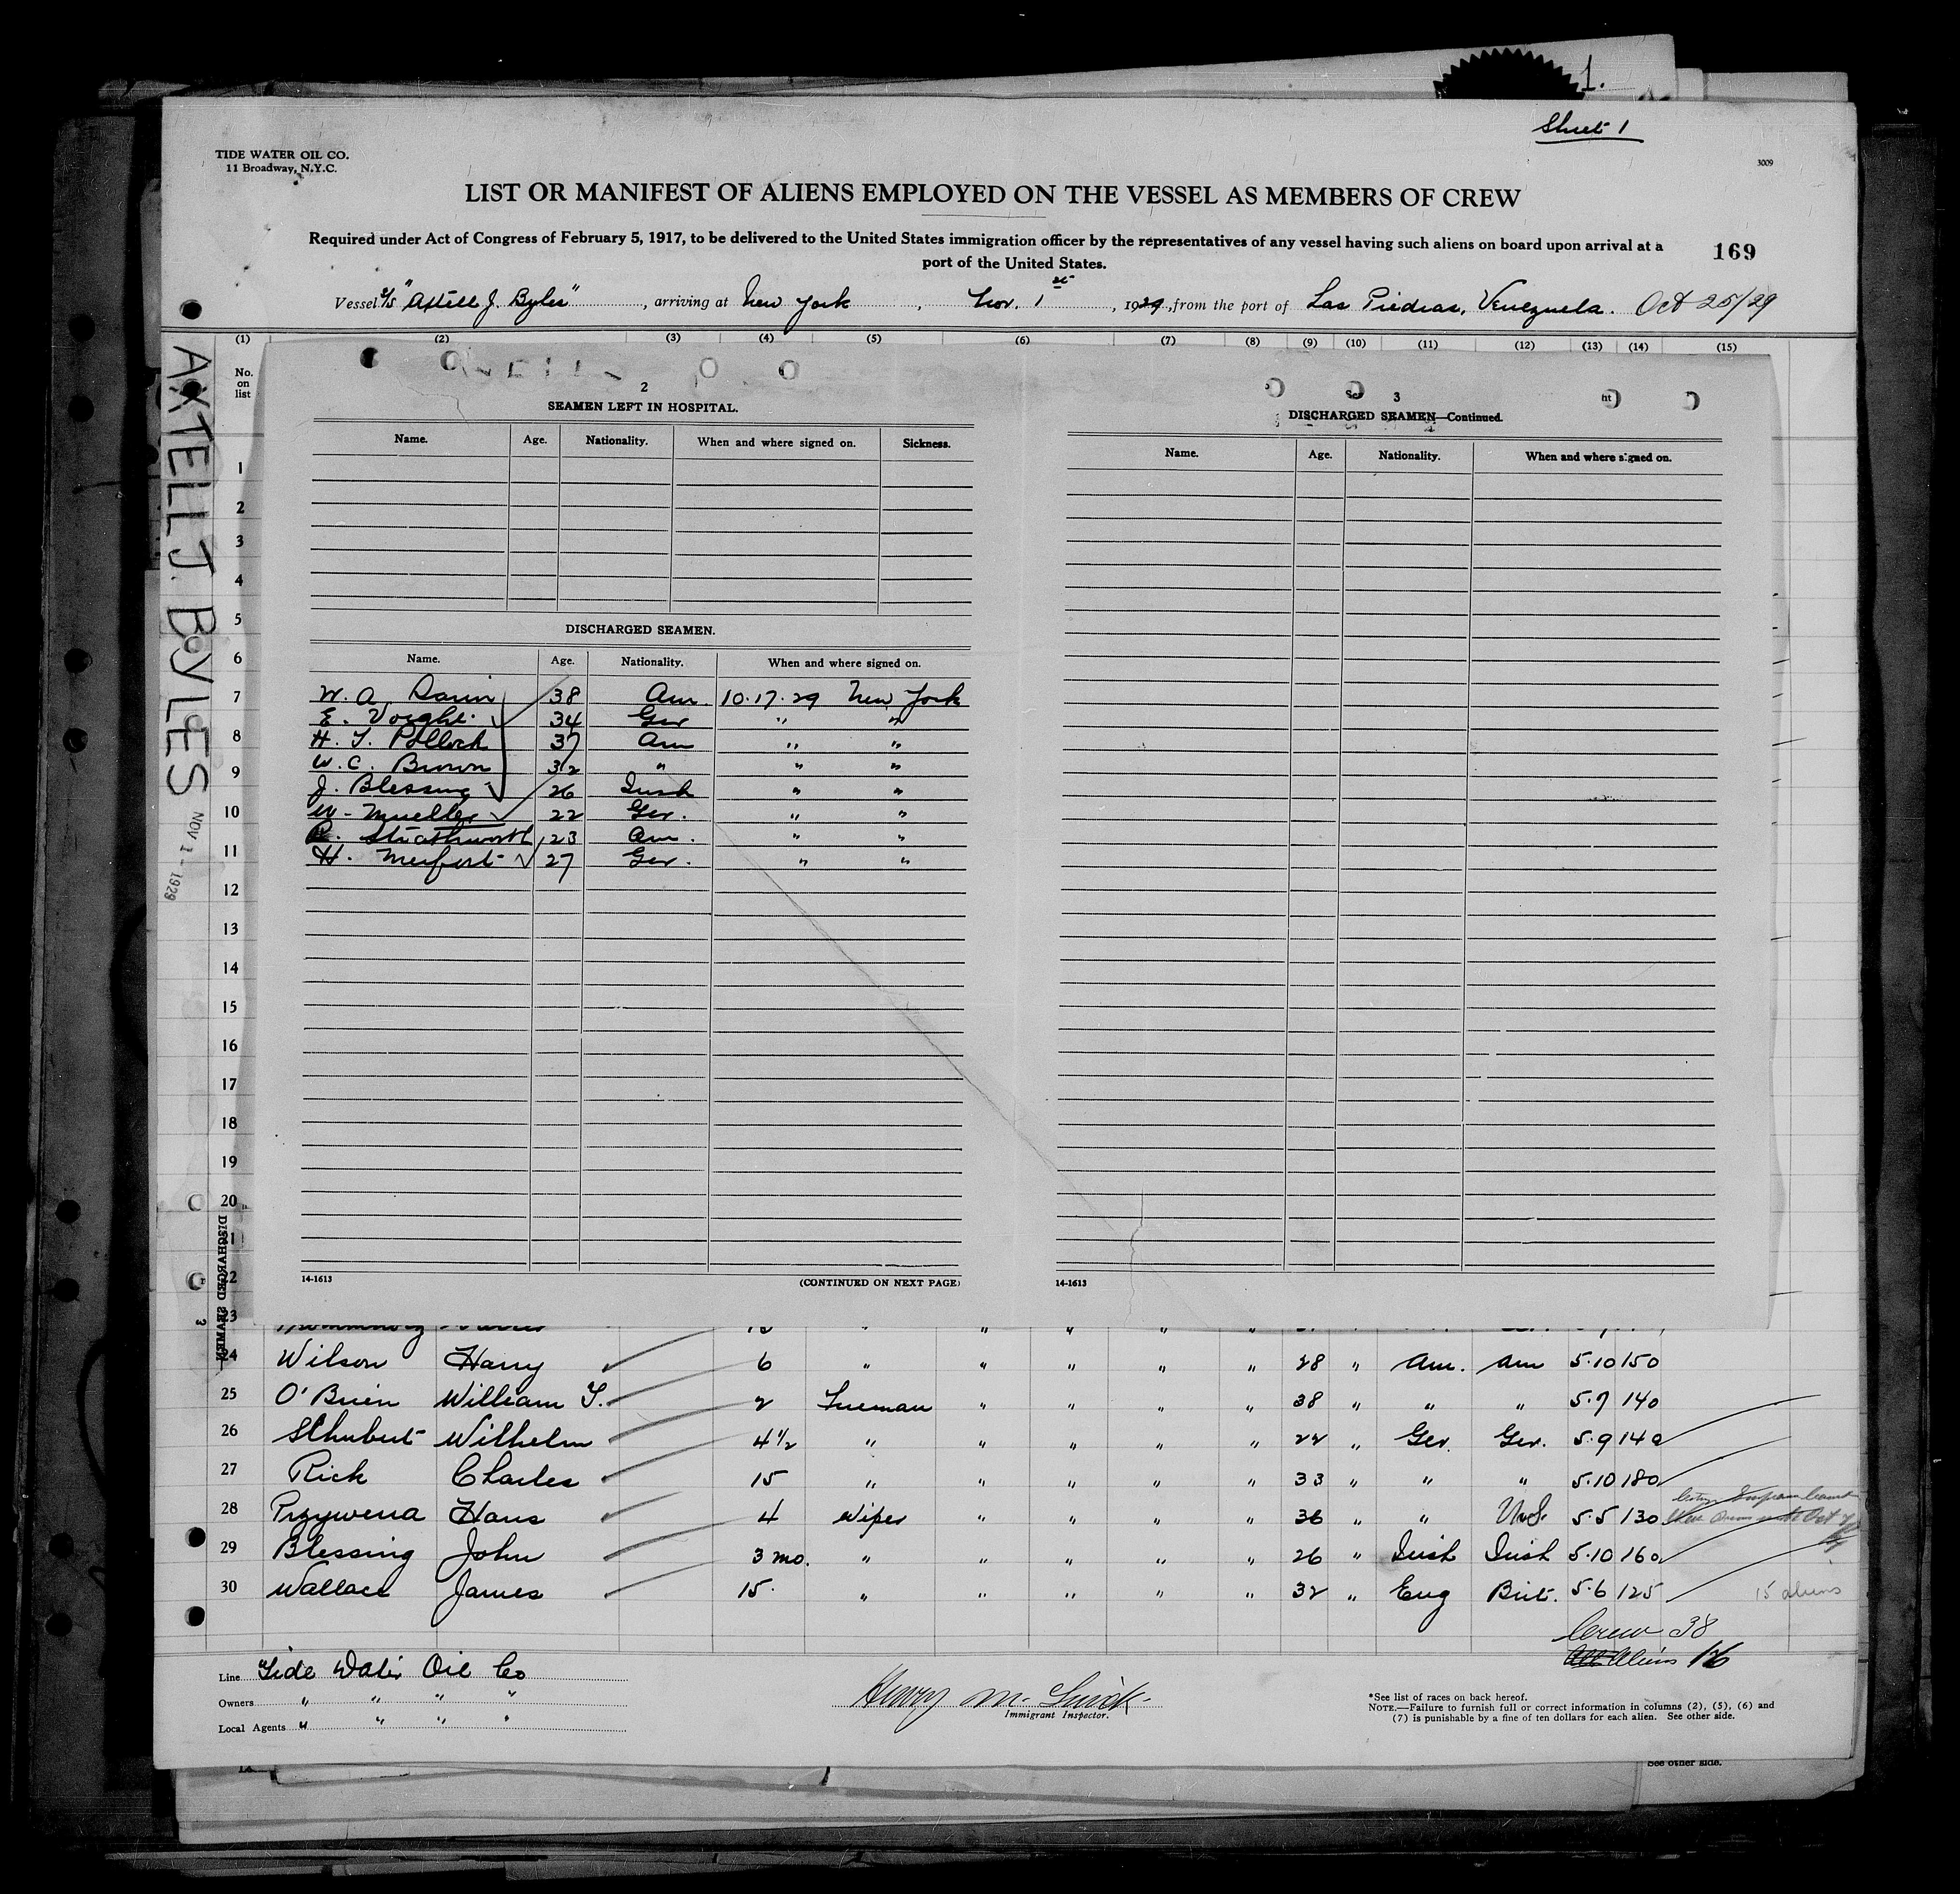 1.
Sheet 1
TIDE WATER OIL CO.
11 Broadway, N.Y.C.
3009
LIST OR MANIFEST OF ALIENS EMPLOYED ON THE VESSEL AS MEMBERS OF CREW
Required under Act of Congress of February 5, 1917, to be delivered to the United States immigration officer by the representatives of any vessel having such aliens on board upon arrival at a
port of the United States.
169
Vessel S/S "Axtell J. Byles", arriving at New York, Nov. 1st, 1929, from the port of Las Piedras, Venezuela. Oct 25/29
(1) (2) (3) (4) (5) (6) (7) (8) (9) (10) (11) (12) (13) (14) (15)
No. on list
AXTELL J. BYLES NOV 1 - 1929
2
SEAMEN LEFT IN HOSPITAL.
Name. Age. Nationality. When and where signed on. Sickness.
DISCHARGED SEAMEN.
Name. Age. Nationality. When and where signed on.
W. A. 38 Am. 10.17.29 New York
E. Voight 34 Ger " "
H. T. Pollock 37 Am " "
W. C. Brown 32 " " "
J. Blessing 26 Irish " "
W. Mueller 22 Ger. " "
R. 23 Am. " "
H. 27 Ger. " "
14-1613 (CONTINUED ON NEXT PAGE)
3
DISCHARGED SEAMEN—Continued.
Name. Age. Nationality. When and where signed on.
14-1613
1
2
3
4
5
6
7
8
9
10
11
12
13
14
15
16
17
18
19
20
22
23
DISCHARGED SEAMEN
3
24 Wilson Harry 6 " " " " " 28 " Am. Am 5.10 150
25 O'Brien William T. 2 Fireman " " " " 38 " " " 5.7 140
26 Schubert Wilhelm 4½ " " " " " 22 " Ger. Ger. 5.9 140
27 Rick Charles 15 " " " " " 33 " " " 5.10 180
28 Przywena Hans 4 Wiper " " " " 36 " " U.S. 5.5 130
29 Blessing John 3 mo. " " " " " 26 " Irish Irish 5.10 160
30 Wallace James 15. " " " " " 32 " Eng Brit. 5.6 125
15 aliens
Crew 38
Aliens 16
Line Tide Water Oil Co
Owners " " " "
Local Agents " " " "
Immigrant Inspector.
*See list of races on back hereof.
NOTE.—Failure to furnish full or correct information in columns (2), (5), (6) and
(7) is punishable by a fine of ten dollars for each alien. See other side.
See other side.